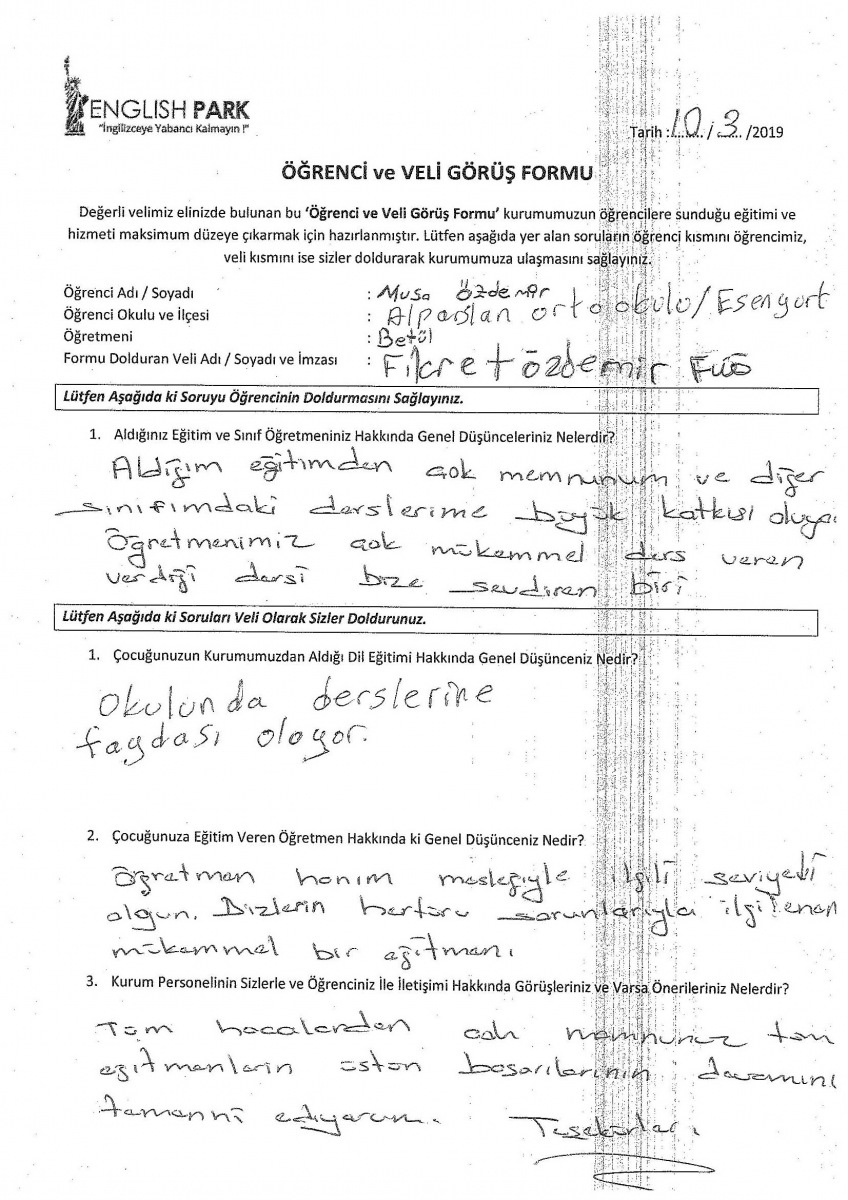 ENGLISH PARK
"İngilizceye Yabancı Kalmayın !"
Tarih : 10 / 3 /2019
ÖĞRENCİ ve VELİ GÖRÜŞ FORMU
Değerli velimiz elinizde bulunan bu 'Öğrenci ve Veli Görüş Formu' kurumumuzun öğrencilere sunduğu eğitimi ve
hizmeti maksimum düzeye çıkarmak için hazırlanmıştır. Lütfen aşağıda yer alan soruların öğrenci kısmını öğrencimiz,
veli kısmını ise sizler doldurarak kurumumuza ulaşmasını sağlayınız.
Öğrenci Adı / Soyadı : Musa Özdemir
Öğrenci Okulu ve İlçesi : Alparslan ortookulo/Esenyurt
Öğretmeni : Betül
Formu Dolduran Veli Adı / Soyadı ve İmzası : Fikret Özdemir
Lütfen Aşağıda ki Soruyu Öğrencinin Doldurmasını Sağlayınız.
1. Aldığınız Eğitim ve Sınıf Öğretmeniniz Hakkında Genel Düşünceleriniz Nelerdir?
Aldığım eğitimden çok memnunum ve diğer
sınıfımdaki derslerime büyük katkısı oluyo.
Öğretmenimiz çok mükemmel ders veren
verdiği dersi bize sevdiren biri
Lütfen Aşağıda ki Soruları Veli Olarak Sizler Doldurunuz.
1. Çocuğunuzun Kurumumuzdan Aldığı Dil Eğitimi Hakkında Genel Düşünceniz Nedir?
Okulunda derslerine
faydası oloyor.
2. Çocuğunuza Eğitim Veren Öğretmen Hakkında ki Genel Düşünceniz Nedir?
Öğretmen hanım mesleğiyle ilgili seviyeli
olgun. Bizlerin hertürü sorunlarıyla ilgilenen
mükemmel bir eğitmen.
3. Kurum Personelinin Sizlerle ve Öğrenciniz İle İletişimi Hakkında Görüşleriniz ve Varsa Önerileriniz Nelerdir?
Tüm hocalardan çok memnunuz tüm
eğitmenlerin üstün başarılarının devamını
temenni ediyorum. Teşekkürler.